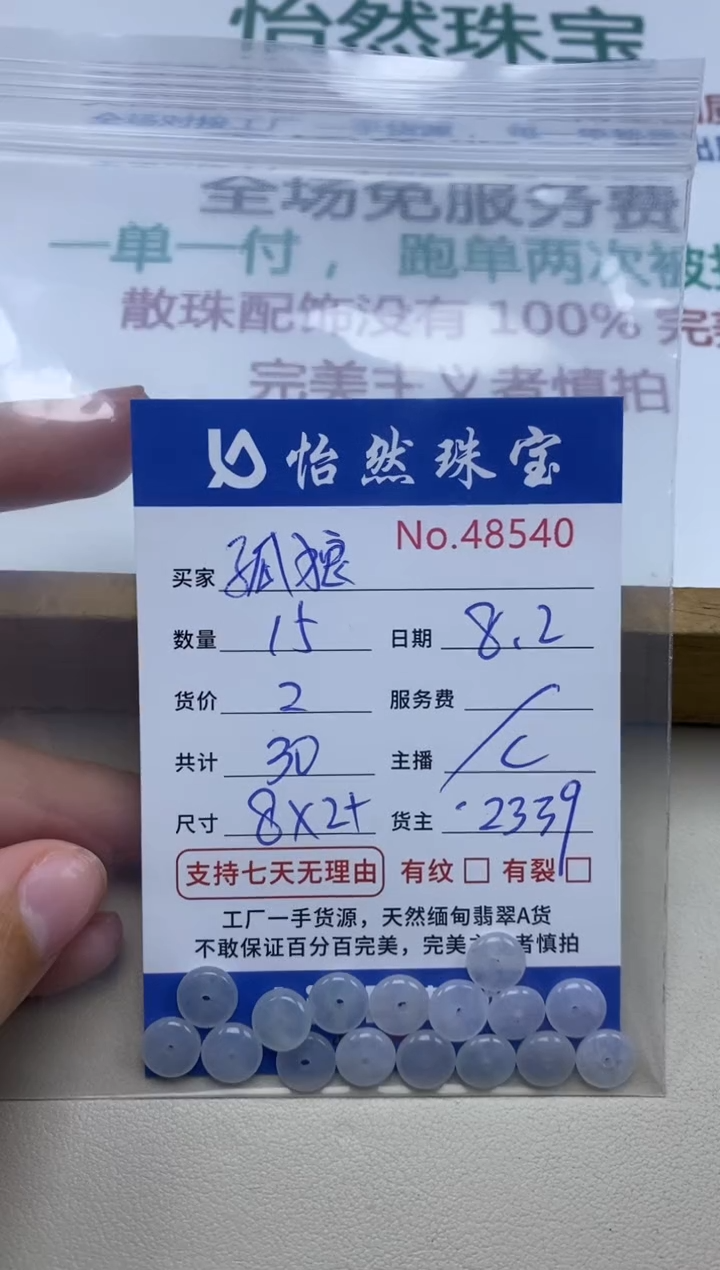 怡然珠宝
全场免服务费
一单一付， 跑单两次被
散珠配饰没有 100% 完
完美主义者慎拍
怡然珠宝
No.48540
买家 孤狼
数量 15 日期 8.2
货价 2 服务费 /
共计 30 主播 C
尺寸 8X2+ 货主 2339
支持七天无理由 有纹 □ 有裂 □
工厂一手货源，天然缅甸翡翠A货
不敢保证百分百完美，完美主 者慎拍